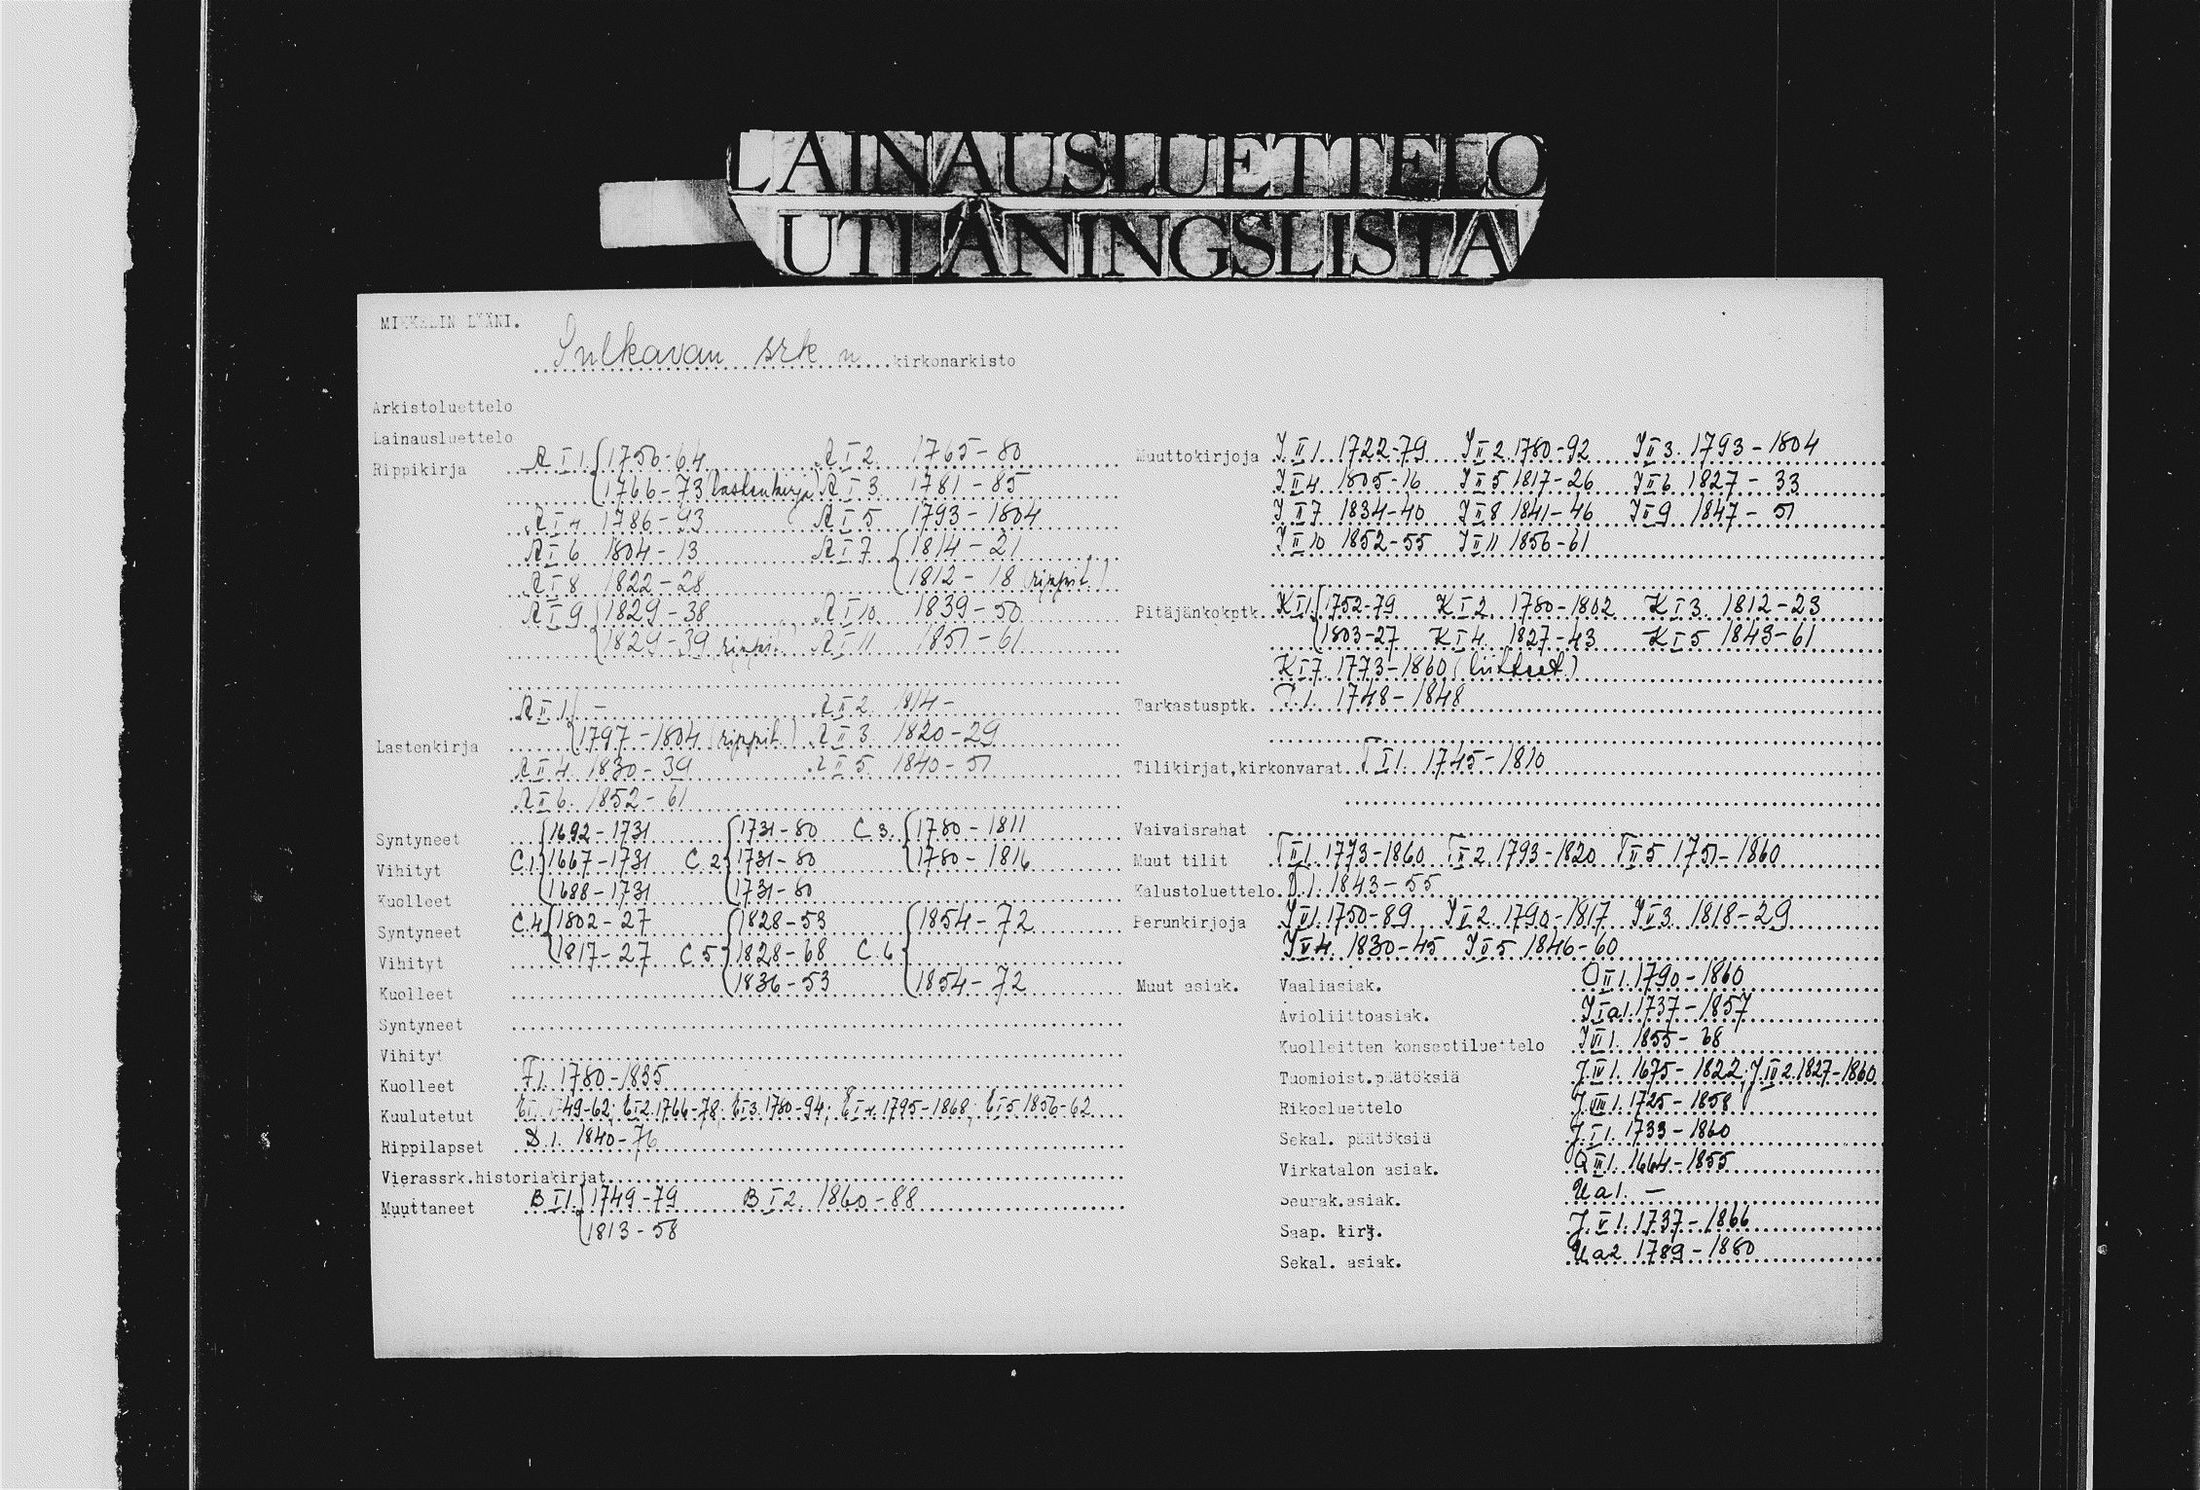 LAINAUSLUETTELO
UTLÅNINGSLISTA
MIKKELIN LÄÄNI.
Sulkavan srk n kirkonarkisto
Arkistoluettelo
Lainausluettelo
Rippikirja A I 1. 1750-64 A I 2. 1765-80
1766-73 (lastenkirja) A I 3. 1781-85
A I 4 1786-93 A I 5 1793-1804
A I 6 1804-13 A I 7 1814-21
A I 8 1822-28 1812-18 (rippil.)
A I 9 1829-38 A I 10 1839-50
1829-39 rippil. A I 11 1851-61
A II 1. - A II 2. 1814-
Lastenkirja 1797-1804 (rippil.) A II 3. 1820-29
A II 4. 1830-39 A II 5. 1840-51
A II 6. 1852-61
Syntyneet 1692-1731 1731-80 C 3. 1780-1811
Vihityt C.1. 1667-1731 C 2 1731-80 1780-1816
Kuolleet 1688-1731 1731-80
Syntyneet C.4 1802-27 1828-53 1854-72
Vihityt 1817-27 C 5 1828-68 C.6
Kuolleet 1836-53 1854-72
Syntyneet
Vihityt
Kuolleet F.1. 1780-1835
Kuulutetut 1749-62; E I 2. 1766-78; E I 3. 1780-94; E I 4. 1795-1868; E I 5. 1856-62
Rippilapset D.1. 1840-76
Vierassrk.historiakirjat
Muuttaneet B I 1. 1749-79 B I 2. 1860-88
1813-58
Muuttokirjoja J II 1. 1722-79 J II 2. 1780-92 J II 3. 1793-1804
J II 4 1805-16 J II 5 1817-26 J II 6 1827-33
J II 7 1834-40 J II 8 1841-46 J II 9 1847-51
J II 10 1852-55 J II 11 1856-61
Pitäjänkokptk. K I 1. 1752-79 K I 2. 1780-1802 K I 3. 1812-23
1803-27 K I 4. 1827-43 K I 5 1843-61
K I 7. 1773-1860 (liitteet)
Tarkastusptk. 1. 1748-1848
Tilikirjat,kirkonvarat T I 1. 1745-1810
Vaivaisrahat
Muut tilit T II 1. 1773-1860 T II 2. 1793-1820 T II 5 1751-1860
Kalustoluettelo 1. 1843-55
Perunkirjoja J V 1. 1750-89 J V 2. 1790-1817 J V 3. 1818-29
J V 4. 1830-45 J V 5 1846-60
Muut asiak. Vaaliasiak. O II 1. 1790-1860
Avioliittoasiak. J I a 1. 1737-1857
Kuolleitten konseptiluettelo J VI 1. 1855-68
Tuomioist.päätöksiä J. IV 1. 1675-1822, J. IV 2. 1827-1860
Rikosluettelo J. VIII 1. 1725-1858
Sekal. päätöksiä J. I 1. 1733-1860
Virkatalon asiak. O III 1. 1664-1855
Seurak.asiak. U a 1. -
Saap. kirj. J. V 1. 1737-1866
Sekal. asiak. U a 2 1789-1880